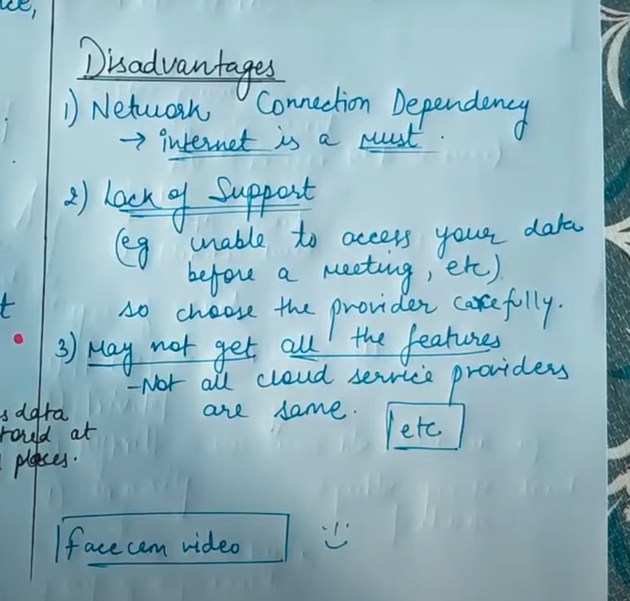 ce,
Disadvantages
1) Network Connection Dependency
→ internet is a must.
2) Lack of Support
(eg unable to access your data
before a meeting, etc).
so choose the provider carefully.
t
3) May not get all the features
-Not all cloud service providers
are same.
etc
s data
tored at
places.
facecam video